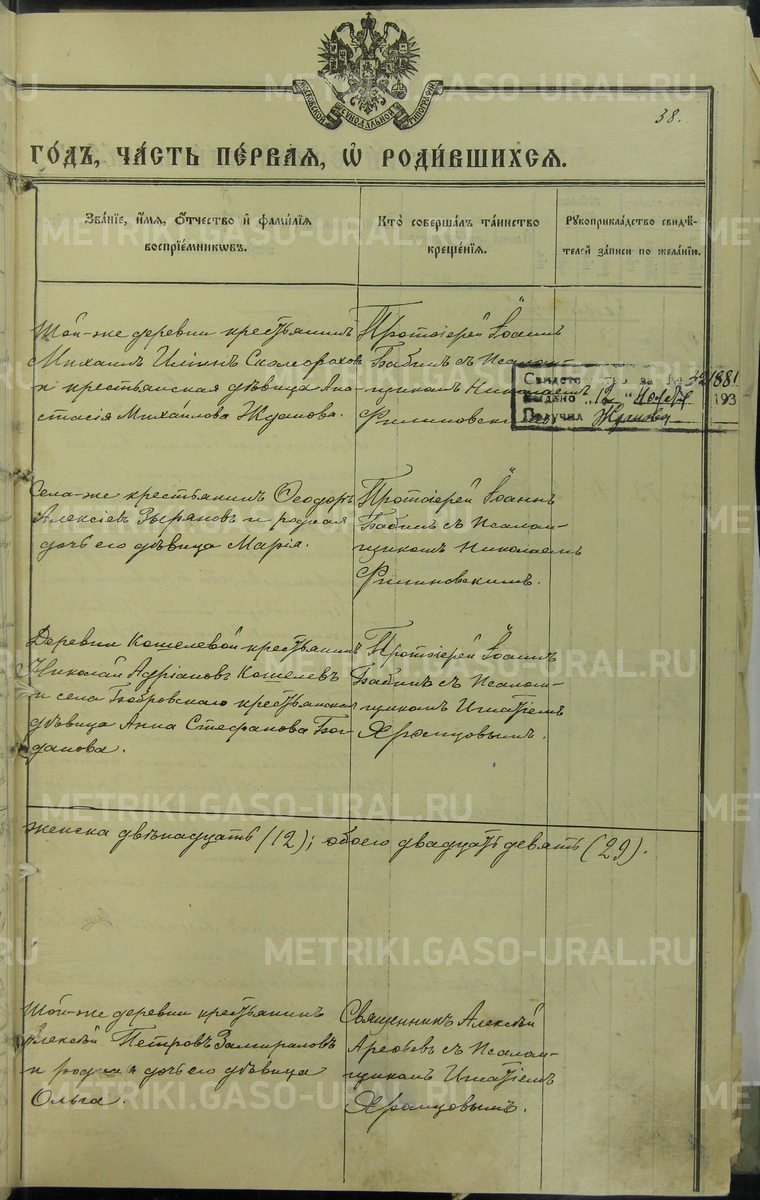 МОСКОВСКОЙ СѴНОДАЛЬНОЙ ТИПОГРАФІИ
38.
ГО́ДЪ, ЧА́СТЬ ПЕ́РВАЯ, Ѡ҆ РОДИ́ВШИХСЯ.
Зва́нїе, и҆́мя, ѻ҆́тчество и҆ фами́лїя
воспрїе́мникѡвъ.
Кто̀ соверша́лъ та́инство
креще́нїя.
Рꙋкоприкла́дство свидѣ́-
телей за́писи по жела́нїю.
Той-же деревни крестьянинъ
Михаилъ Иліинъ Скоморохов
и крестьянская дѣвица Ана-
стасія Михайлова Жданова.
Протоіерей Іоаннъ
Бабинъ съ Псалом-
щикомъ Николаемъ
Филиновскимъ
Свидетельство за №
Выдано "12" Ноября 193
Получил Жданова
Села-же крестьянинъ Ѳеодоръ
Алексіевъ Зыряновъ и родная
дочь его дѣвица Марія.
Протоіерей Іоаннъ
Бабинъ съ Псалом-
щикомъ Николаемъ
Филиновскимъ.
Деревни Кошелевой крестьянинъ
Николай Адріановъ Кошелевъ
и села Бобровскаго крестьянская
дѣвица Анна Стефанова Бог-
данова.
Протоіерей Іоаннъ
Бабинъ съ Псалом-
щикомъ Игнатіемъ
женска двѣнадцать (12); обоего двадцать девять (29).
Той-же деревни крестьянинъ
Алексѣй Петровъ Замираловъ
и родная дочь его дѣвица
Ольга.
Священникъ Алексѣй
Арефьевъ съ Псалом-
щикомъ Игнатіемъ
METRIKI.GASO-URAL.RU